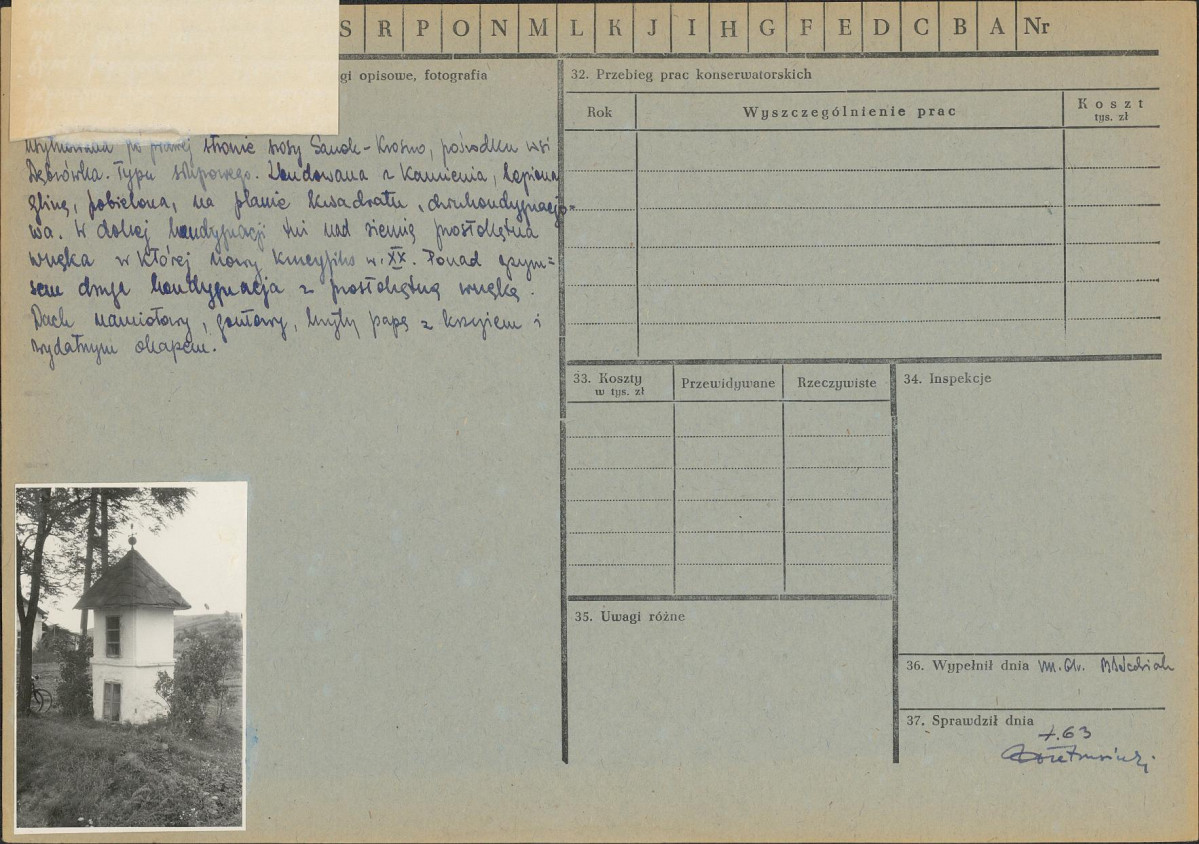 S R P O N M L K J I H G F E D C B A Nr
gi opisowe, fotografia
usytuowana po prawej stronie szosy Sanok-Krosno, pośrodku wsi
Dąbrówka. Typu słupowego. Zbudowana z kamienia, lepiona
gliną, pobielona, na planie kwadratu, dwukondygnacjo=
wa. W dolnej kondygnacji tuż nad ziemią prostokątna
wnęka w której nowy krucyfiks w. XX. Ponad gzym=
sem druga kondygnacja z prostokątną wnęką.
Dach namiotowy, gontowy, kryty papą z krzyżem i
wydatnym okapem.
32. Przebieg prac konserwatorskich
Rok
Wyszczególnienie prac
Koszt
tys. zł
33. Koszty
w tys. zł
Przewidywane
Rzeczywiste
34. Inspekcje
35. Uwagi różne
36. Wypełnił dnia
37. Sprawdził dnia
63